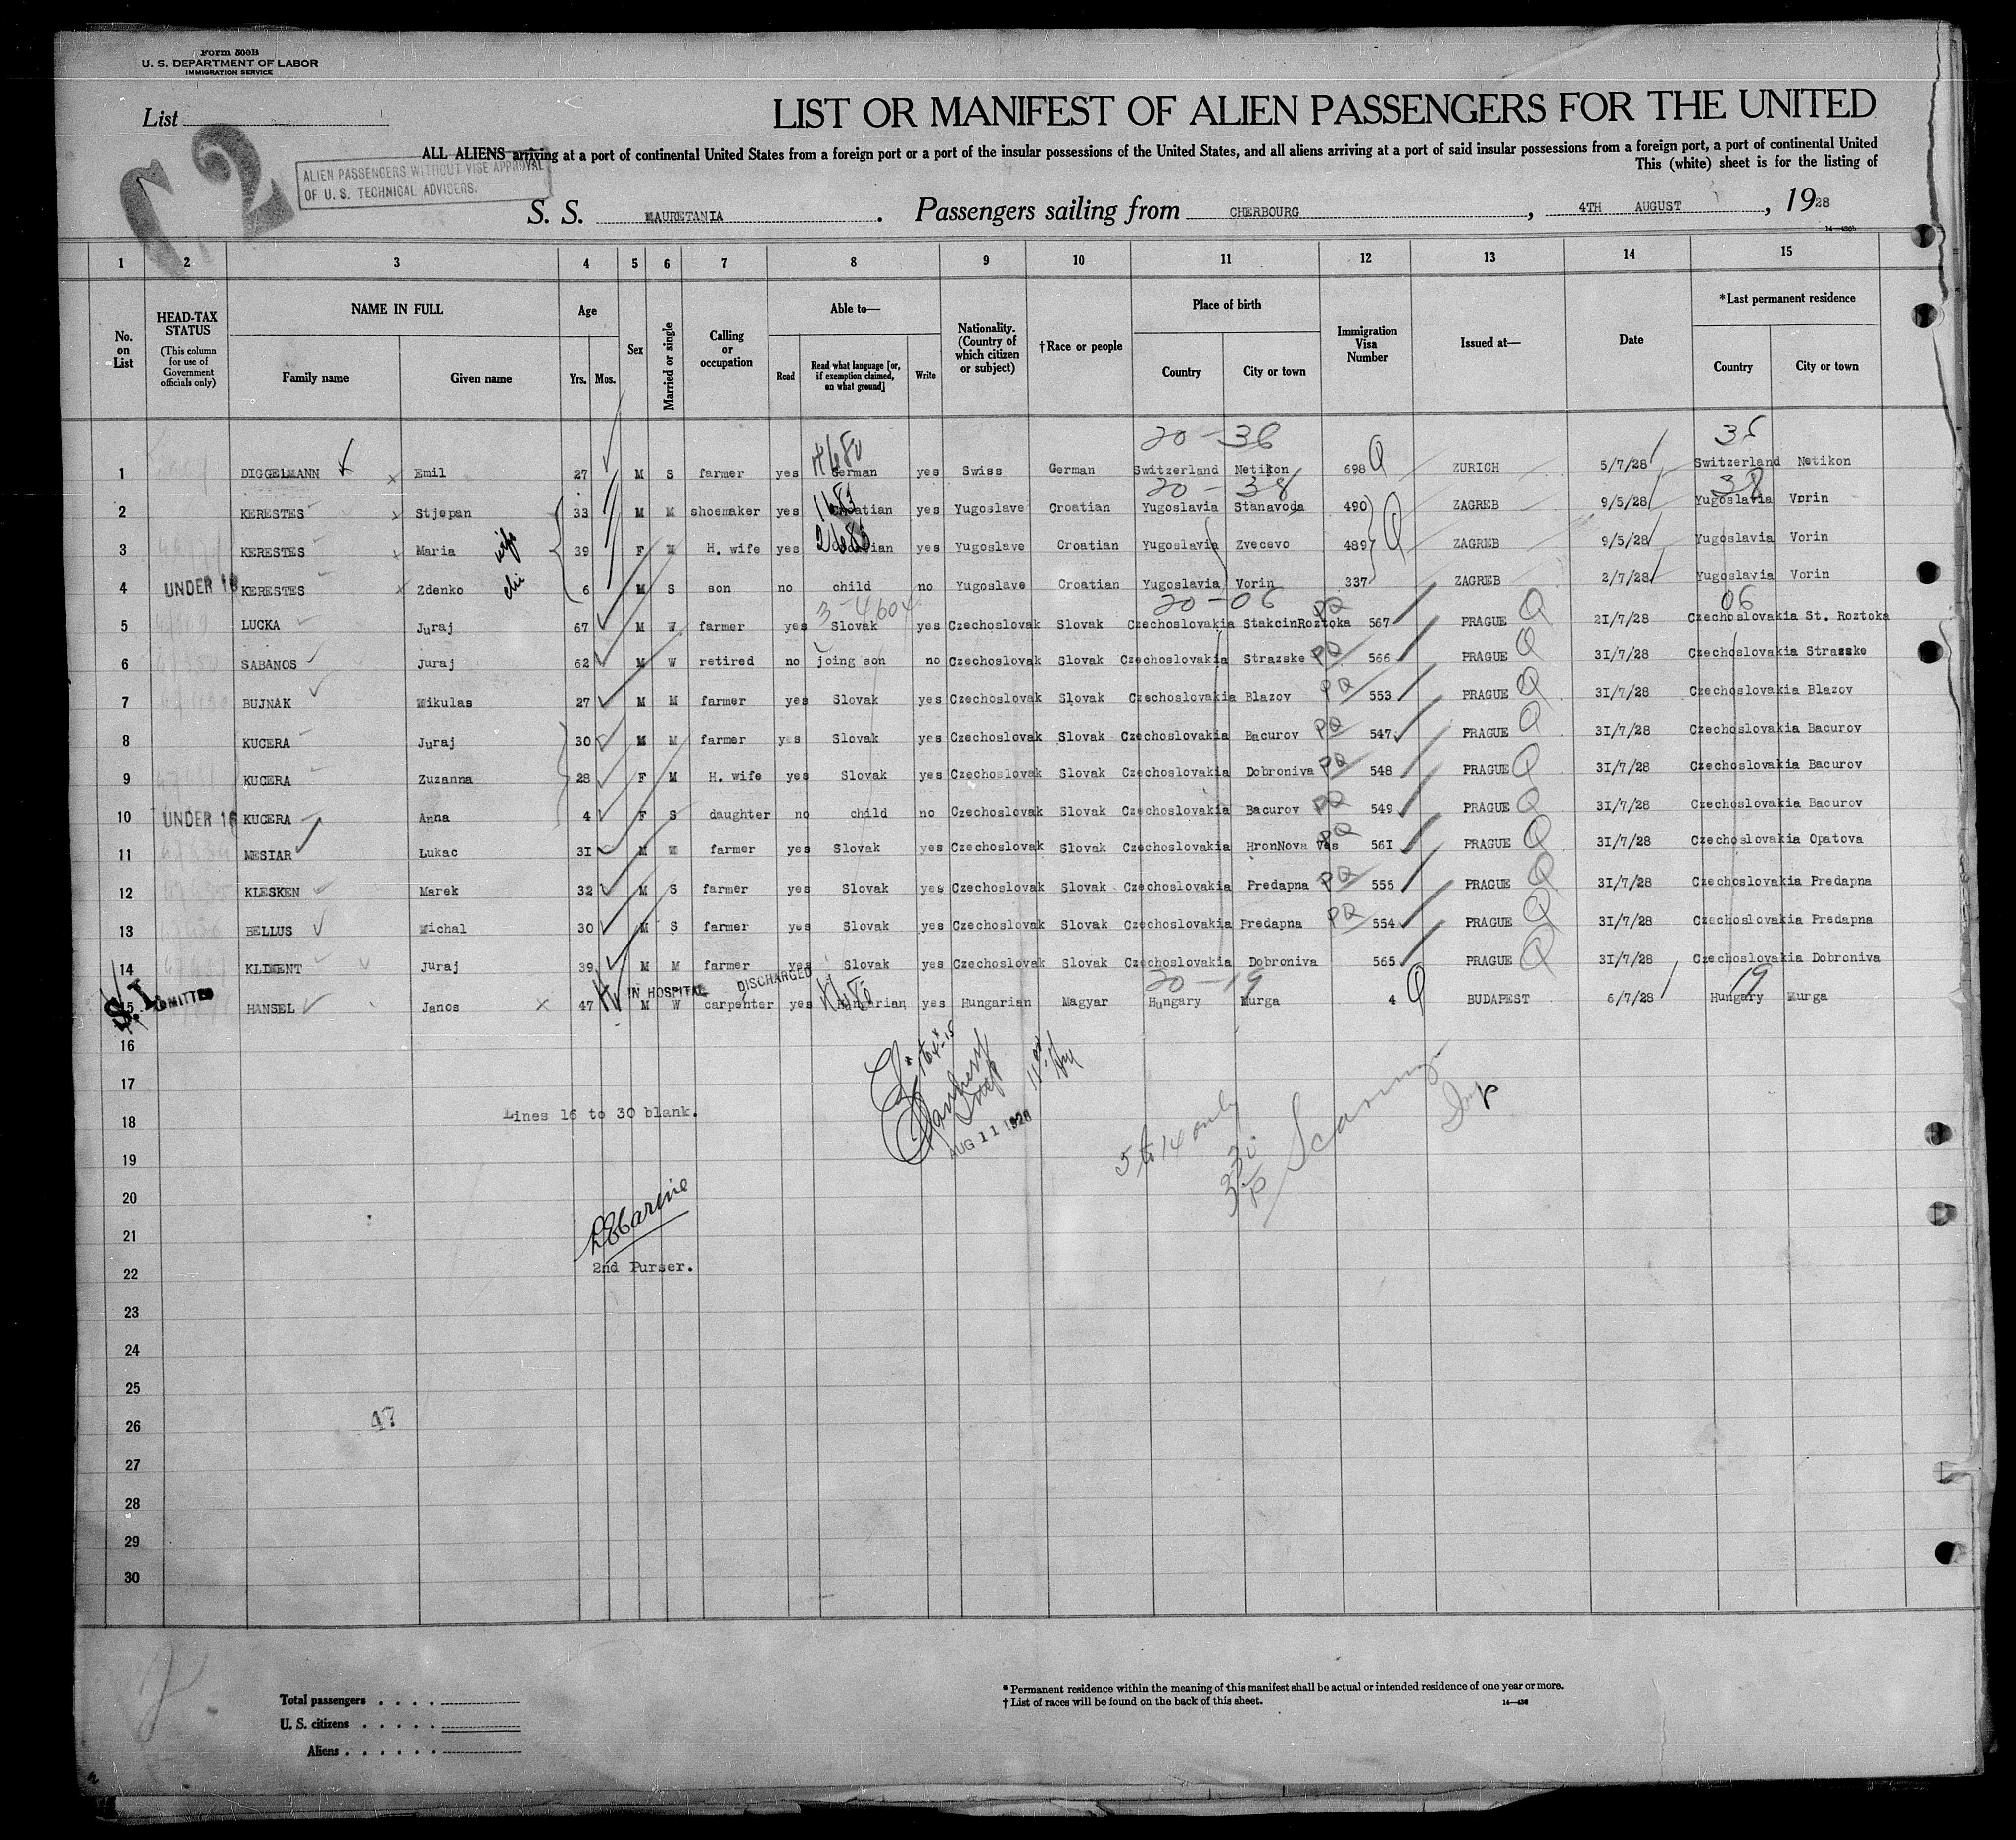 Form 500B
U. S. DEPARTMENT OF LABOR
IMMIGRATION SERVICE
List
LIST OR MANIFEST OF ALIEN PASSENGERS FOR THE UNITED
ALL ALIENS arriving at a port of continental United States from a foreign port or a port of the insular possessions of the United States, and all aliens arriving at a port of said insular possessions from a foreign port, a port of continental United
This (white) sheet is for the listing of
ALIEN PASSENGERS WITHOUT VISE APPROVAL
OF U. S. TECHNICAL ADVISERS.
S. S. MAURETANIA . Passengers sailing from CHERBOURG , 4TH AUGUST , 1928
14—430b
1 2 3 4 5 6 7 8 9 10 11 12 13 14 15
No. on List
HEAD-TAX STATUS (This column for use of Government officials only)
NAME IN FULL
Family name Given name
Age
Yrs. Mos.
Sex
Married or single
Calling or occupation
Able to—
Read Read what language [or, if exemption claimed, on what ground] Write
Nationality. (Country of which citizen or subject)
†Race or people
Place of birth
Country City or town
Immigration Visa Number
Issued at—
Date
*Last permanent residence
Country City or town
20 - 36
1 DIGGELMANN Emil 27 M S farmer yes German yes Swiss German Switzerland Netikon 698 Q ZURICH 5/7/28 Switzerland Netikon
20 - 38 38
2 KERESTES Stjepan 33 M M shoemaker yes Croatian yes Yugoslave Croatian Yugoslavia Stanavoda 490 ZAGREB 9/5/28 Yugoslavia Vorin
3 KERESTES Maria wife 39 F M H. wife yes Croatian yes Yugoslave Croatian Yugoslavia Zvecevo 489 Q ZAGREB 9/5/28 Yugoslavia Vorin
4 UNDER 16 KERESTES Zdenko 6 M S son no child no Yugoslave Croatian Yugoslavia Vorin 337 ZAGREB 2/7/28 Yugoslavia Vorin
20 - 06 06
5 LUCKA Juraj 67 M W farmer yes Slovak yes Czechoslovak Slovak Czechoslovakia StakcinRoztoka PQ 567 PRAGUE Q 21/7/28 Czechoslovakia St. Roztoka
6 SABANOS Juraj 62 M W retired no joing son no Czechoslovak Slovak Czechoslovakia Strazske PQ 566 PRAGUE Q 31/7/28 Czechoslovakia Strazske
7 BUJNAK Mikulas 27 M M farmer yes Slovak yes Czechoslovak Slovak Czechoslovakia Blazov PQ 553 PRAGUE Q 31/7/28 Czechoslovakia Blazov
8 KUCERA Juraj 30 M M farmer yes Slovak yes Czechoslovak Slovak Czechoslovakia Bacurov PQ 547 PRAGUE Q 31/7/28 Czechoslovakia Bacurov
9 KUCERA Zuzanna 28 F M H. wife yes Slovak yes Czechoslovak Slovak Czechoslovakia Dobroniva PQ 548 PRAGUE Q 31/7/28 Czechoslovakia Bacurov
10 UNDER 16 KUCERA Anna 4 F S daughter no child no Czechoslovak Slovak Czechoslovakia Bacurov PQ 549 PRAGUE Q 31/7/28 Czechoslovakia Bacurov
11 MESIAR Lukac 31 M M farmer yes Slovak yes Czechoslovak Slovak Czechoslovakia HronNova Ves PQ 561 PRAGUE Q 31/7/28 Czechoslovakia Opatova
12 KLESKEN Marek 32 M S farmer yes Slovak yes Czechoslovak Slovak Czechoslovakia Predapna PQ 555 PRAGUE Q 31/7/28 Czechoslovakia Predapna
13 BELLUS Michal 30 M S farmer yes Slovak yes Czechoslovak Slovak Czechoslovakia Predapna PQ 554 PRAGUE Q 31/7/28 Czechoslovakia Predapna
14 KLIMENT Juraj 39 M M farmer yes Slovak yes Czechoslovak Slovak Czechoslovakia Dobroniva 565 PRAGUE Q 31/7/28 Czechoslovakia Dobroniva
IN HOSPITAL DISCHARGED 20 - 19 19
15 S.I. ADMITTED HANSEL Janos 47 M W carpenter yes Hungarian yes Hungarian Magyar Hungary Murga 4 Q BUDAPEST 6/7/28 Hungary Murga
16
17
18 Lines 16 to 30 blank.
AUG 11 1928
5 to 14 only
19
20
21
22 2nd Purser.
23
24
25
26 47
27
28
29
30
Total passengers
U. S. citizens
Aliens
* Permanent residence within the meaning of this manifest shall be actual or intended residence of one year or more.
† List of races will be found on the back of this sheet.
14—430